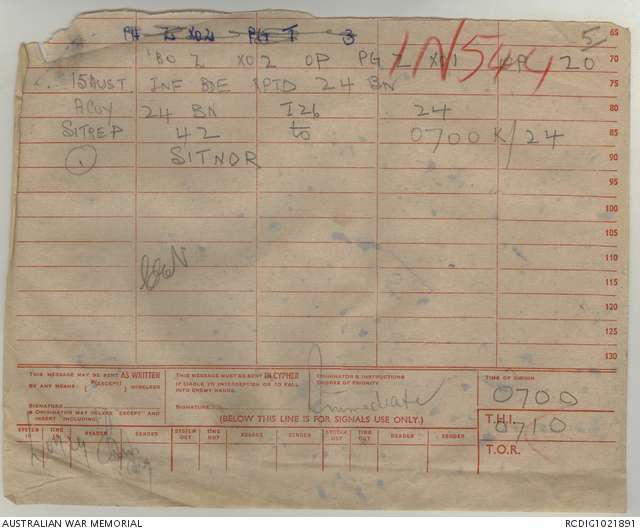 5
65
'BO Z XO2 OP PG Z XO1 20
70
IN544
15 AUST INF BDE RPTD 24 BN
75
A COY 24 BN I26 24
80
SITREP 42 to 0700K/24
85
1 SITNOR
90
95
100
105
110
115
120
125
130
THIS MESSAGE MAY BE SENT AS WRITTEN
BY ANY MEANS (EXCEPT) WIRELESS
SIGNATURE
ORIGINATOR MAY DELETE "EXCEPT" AND
INSERT (INCLUDING)
THIS MESSAGE MUST BE SENT IN CYPHER
IF LIABLE TO INTERCEPTION OR TO FALL
INTO ENEMY HANDS.
SIGNATURE
ORIGINATOR'S INSTRUCTIONS
DEGREE OF PRIORITY
Immediate
TIME OF ORIGIN
0700
T.H.I.
0710
T.O.R.
(BELOW THIS LINE IS FOR SIGNALS USE ONLY.)
SYSTEM IN TIME IN READER SENDER SYSTEM OUT TIME OUT READER SENDER SYSTEM OUT TIME OUT READER SENDER
AUSTRALIAN WAR MEMORIAL
RCDIG1021891